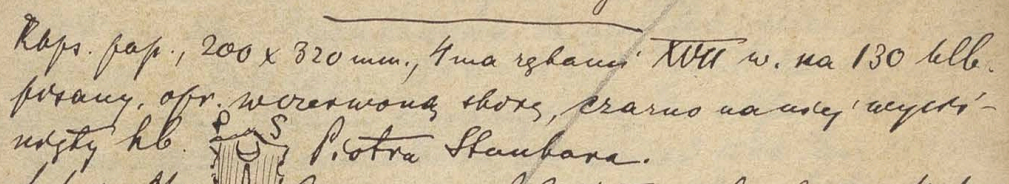 Rbps. pap., 200 x 320 mm., 4ma rękami XVII w. na 130 klb.
pisany, opr. w czerwoną skórę, czarno na niej wyciś-
nięty hb. P S Piotra Stanbara.